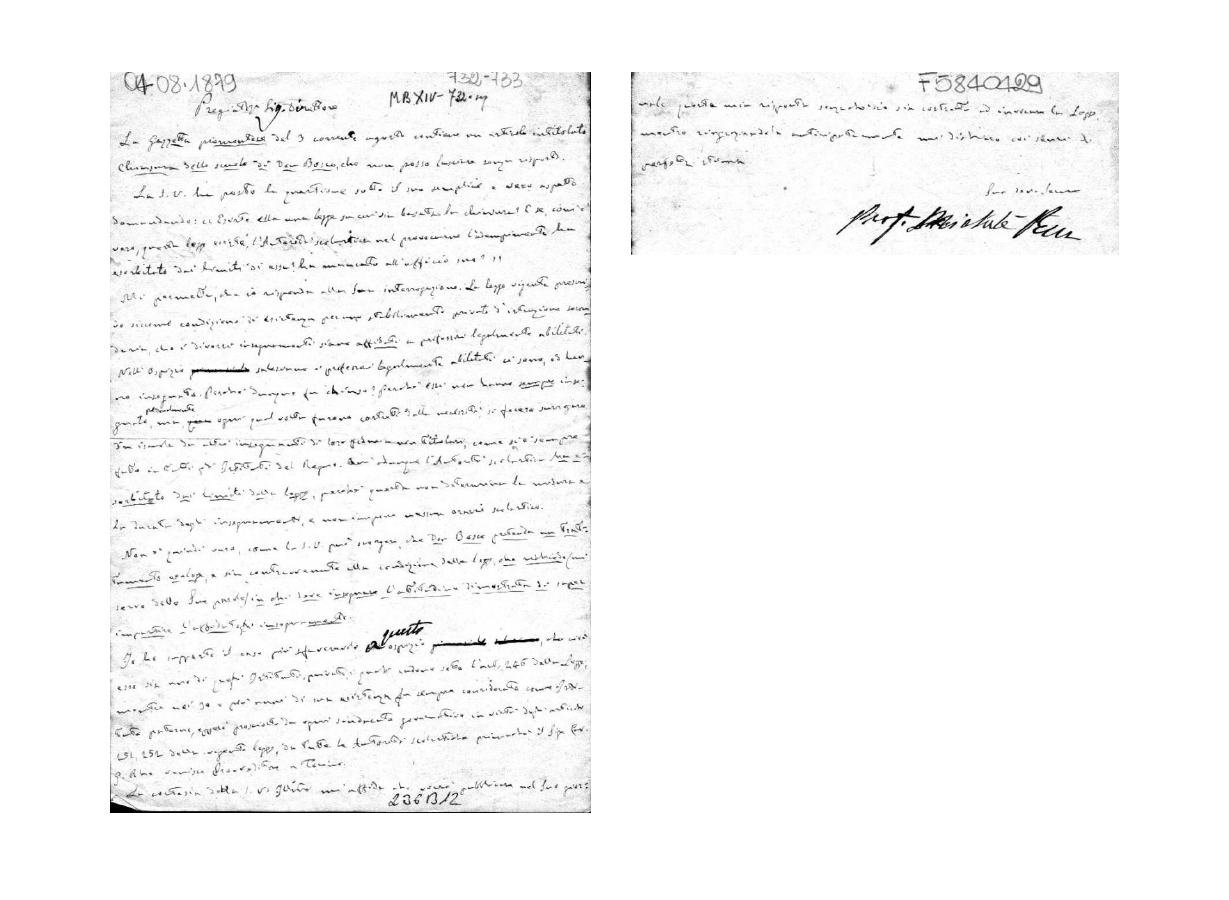 04.08.1879
732-733
MB XIV-732 sg
Pregiatmo Sig. Direttore
La Gazzetta piemontese del 3 corrente agosto contiene un articolo intitolato
Chiusura delle scuole di Don Bosco, che non posso lasciare senza risposta.
La S.V. ha posto la questione sotto il suo semplice e vero aspetto
domandando: Esiste ella una legge su cui sia basata la chiusura? E se, com'è
vero, questa legge esiste, l'Autorità scolastica nel provocarne l'adempimento ha
esorbitato dai limiti di essa? ha mancato all'ufficio suo?
Mi permetta, che io risponda alla Sua interrogazione. La legge vigente prescri-
ve siccome condizione di esistenza per uno stabilimento privato d'istruzione secon
daria, che i diversi insegnamenti siano affidati a professori legalmente abilitati.
Nell'Ospizio salesiano i professori legalmente abilitati ci sono, ed han-
no insegnato. Perchè dunque fu chiuso? Perchè essi non hanno sempre inse-
personalmente
gnato, ma ogni qual volta furono costretti dalla necessità, si fecero surrogare
in iscuola da altri insegnanti di loro fiducia non titolari, come si è sempre
fatto in tutti gli Istituti del Regno. Qui dunque l'Autorità scolastica ha e-
sorbitato dai limiti della legge, perchè questa non determina la misura e
la durata degli insegnamenti, e non impone nessun orario scolastico.
Non è quindi vero, come la S.V. può scorgere, che Don Bosco pretenda un trat-
tamento esclusivo, e sia contravvenuto alla condizione della legge, che
servo delle Sue parole in chi deve insegnare l'attitudine dimostrata di saper
impartire l'affidatogli insegnamento.
questo
Io ho supposto il caso più sfavorevole a ospizio , che cioè
esso sia uno di quegli Istituti privati, i quali cadono sotto l'art. 246 della legge,
mentre nei 30 e più anni di sua esistenza fu sempre considerato come Isti-
tuto paterno, epperò prosciolto da ogni sindacato governativo in virtù degli articoli
251, 252 della vigente legge, da tutte le Autorità scolastiche primachè il Sig. Cav.
Rho venisse Provveditore a Torino.
La cortesia della S.V. m'affida che vorrà pubblicare nel Suo gior-
236B12
F5840429
nale questa mia risposta senzachè io sia costretto ad invocare la legge,
mentre ringraziandola anticipatamente mi dichiaro coi sensi di
perfetta stima
Suo devot. servo
Prof. Michele Rua